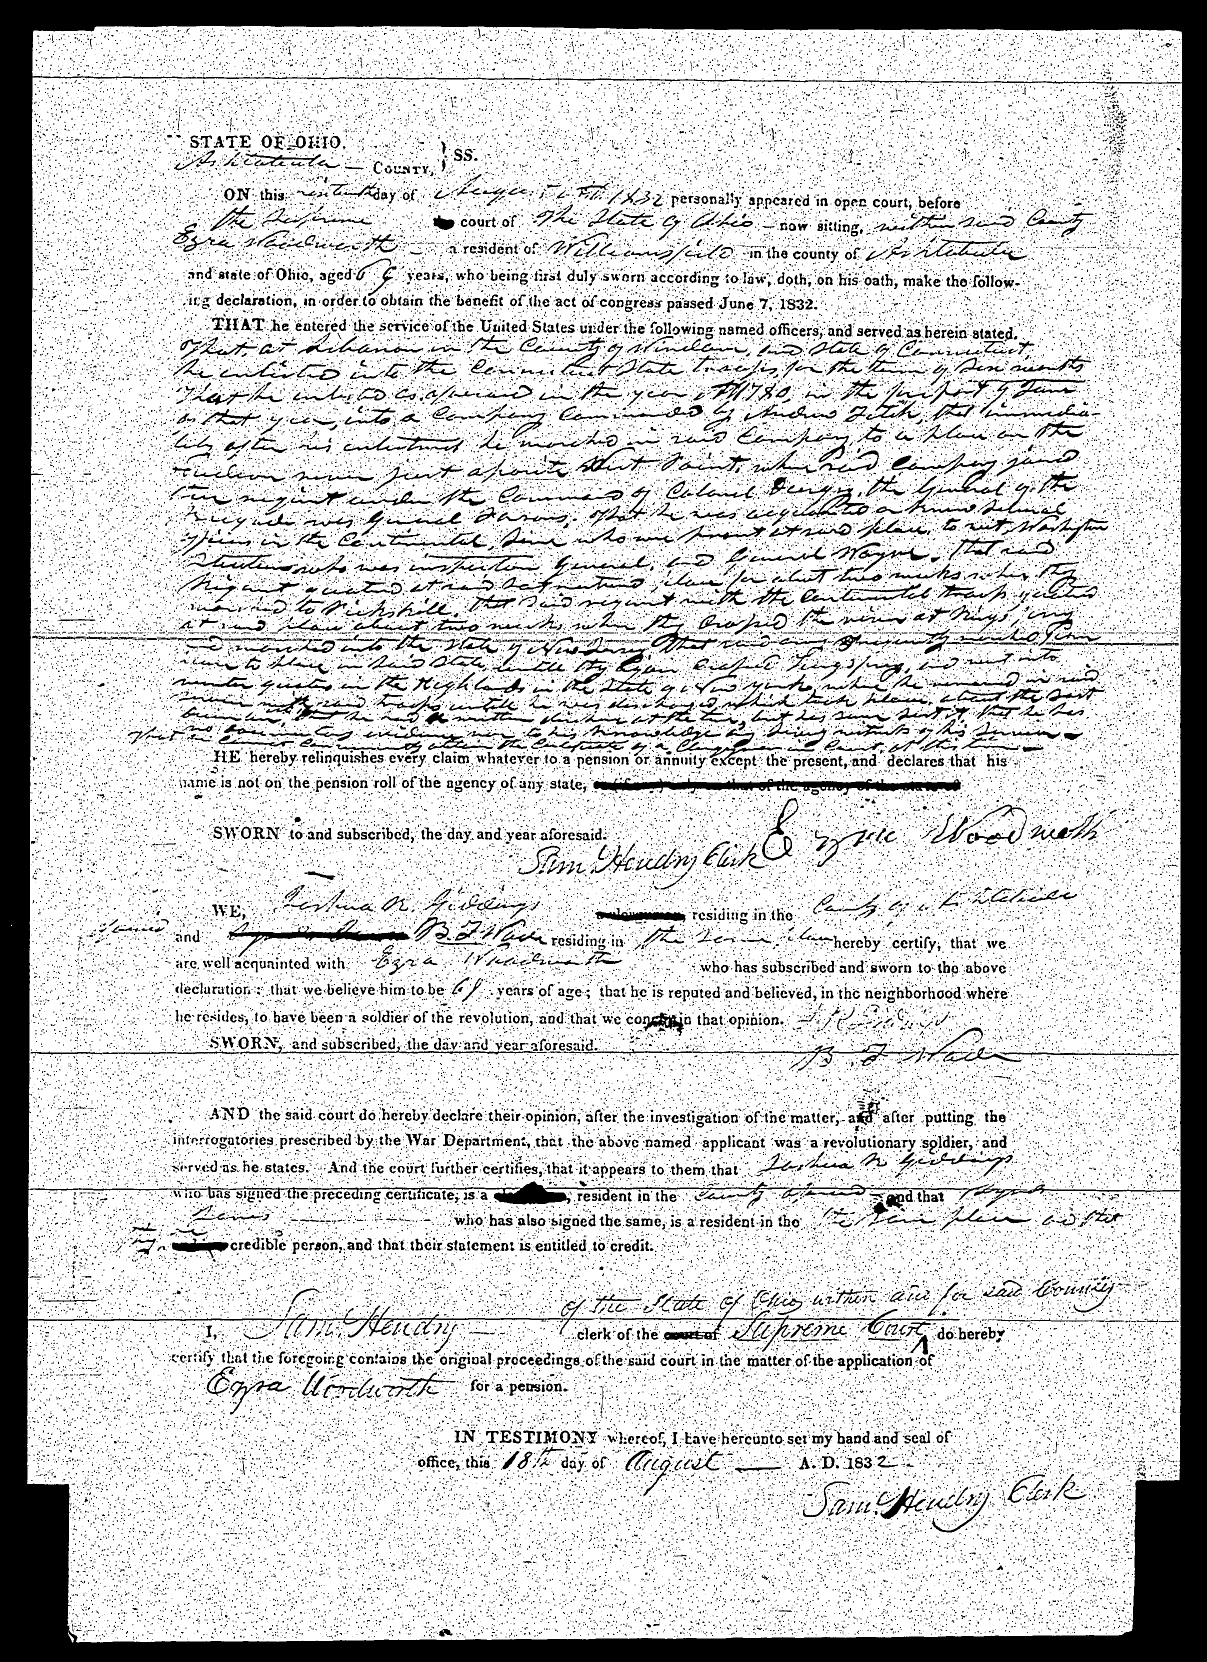 STATE OF OHIO.
Ashtabula — COUNTY, } SS.
ON this sixteenth day of August A.D. 1832 personally appeared in open court, before
the Supreme court of The State of Ohio – now sitting, within said County
Ezra Woodworth – a resident of Williamsfield in the county of Ashtabula
and state of Ohio, aged years, who being first duly sworn according to law, doth, on his oath, make the follow-
ing declaration, in order to obtain the benefit of the act of congress passed June 7, 1832.
THAT he entered the service of the United States under the following named officers, and served as herein stated.
That at Lebanon in the County of Windham, and State of Connecticut,
he enlisted into the Connecticut State troops for the term of Six months
That he enlisted as aforesaid in the year AD 1780, in the forepart of June
in that year, into a Company Commanded by Andrew Fitch, that immedia-
tely after his enlistment he marched in said Company to a place on the
Hudson river just opposite West Point, where said Company joined
regiment under the Command of Colonel the General of the
Brigade was General Parsons. That he was acquainted with several
officers in the Continental line who were present at said place, to wit Washington
who was inspector General, and General Wayne. That said
Regiment quartered at said place for about two weeks when they
marched to Peekskill. That said regiment with the Continental troops quartered
at said place about two weeks when they crossed the river at Kings ferry
and marched into the State of New Jersey That said army frequently marched from
place to place in said State, untill they again crossed Kings ferry, and went into
winter quarters in the Highlands in the State of New York, where he remained in said
service with said troops untill he was discharged, which took place about the last
that he had a written discharge at the time, but has since lost it That he has
no documentary evidence nor to his knowledge any living witness of his service –
That he cannot conveniently obtain the Certificate of a Clergyman in Court, at this time –
HE hereby relinquishes every claim whatever to a pension or annuity except the present, and declares that his
name is not on the pension roll of the agency of any state,
SWORN to and subscribed, the day and year aforesaid.
Ezra Woodworth
Saml. Hendry Clerk
WE, Joshua R. Giddings residing in the County of Ashtabula
and B. F. Wade residing in the same place hereby certify, that we
are well acquainted with Ezra Woodworth who has subscribed and sworn to the above
declaration: that we believe him to be years of age; that he is reputed and believed, in the neighborhood where
he resides, to have been a soldier of the revolution, and that we concur in that opinion. J R Giddings
SWORN, and subscribed, the day and year aforesaid.
B. F. Wade
AND the said court do hereby declare their opinion, after the investigation of the matter, and after putting the
interrogatories prescribed by the War Department, that the above named applicant was a revolutionary soldier, and
served as he states. And the court further certifies, that it appears to them that Joshua R Giddings
who has signed the preceding certificate, is a resident in the County aforesaid and that
who has also signed the same, is a resident in the the same place and that
credible person, and that their statement is entitled to credit.
of the State of Ohio within and for said County
I, Saml. Hendry — clerk of the court of Supreme Court do hereby
certify that the foregoing contains the original proceedings of the said court in the matter of the application of
Ezra Woodworth for a pension.
IN TESTIMONY whereof, I have hereunto set my hand and seal of
office, this 18th day of August — A. D. 1832
Saml. Hendry Clerk